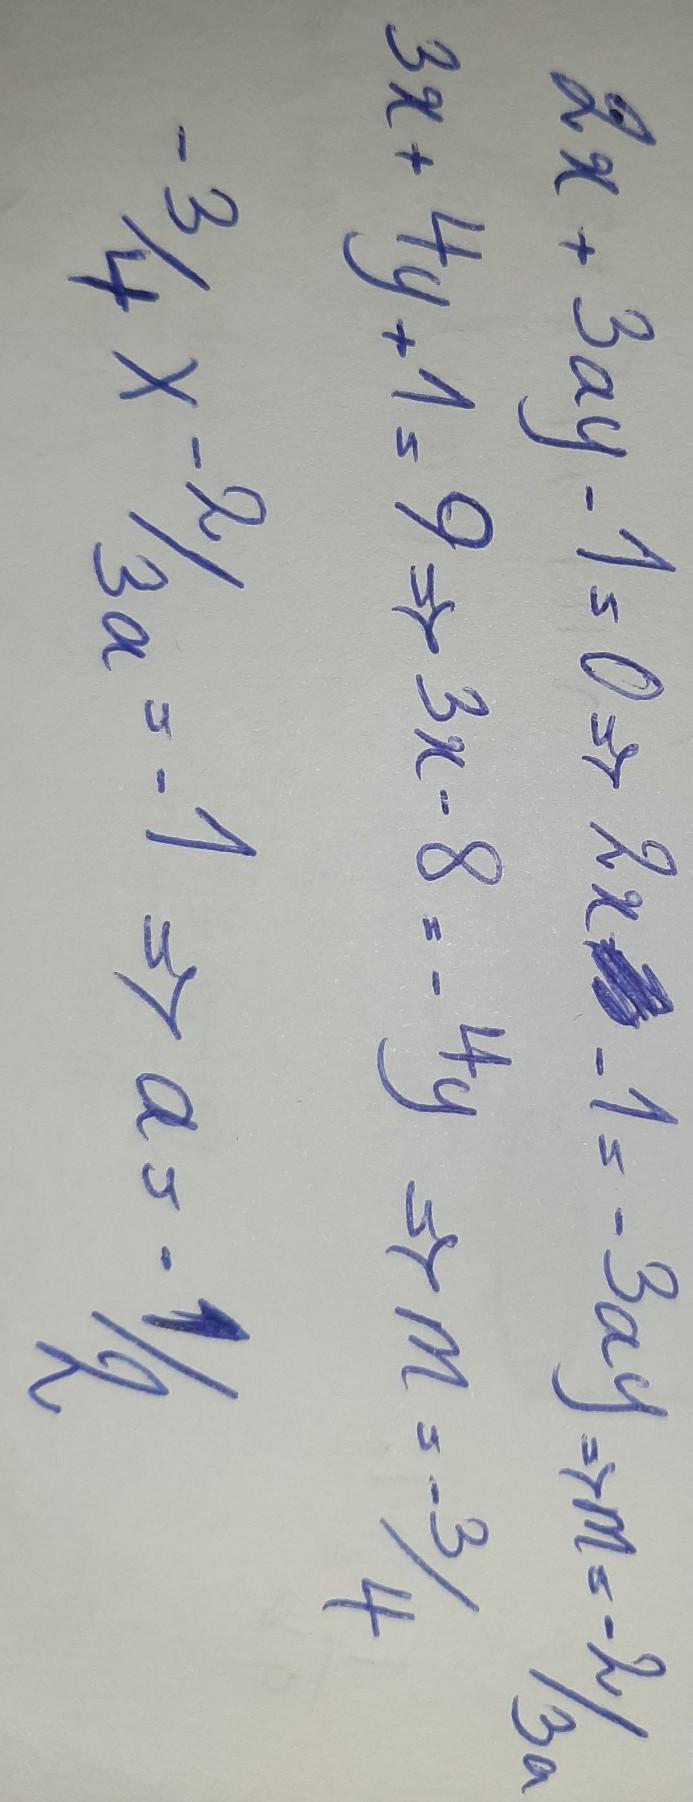 2x + 3ay - 1 = 0 ⇒ 2x - 1 = -3ay ⇒ m = -2/3a
3x + 4y + 1 = 9 ⇒ 3x - 8 = -4y ⇒ m = -3/4
-3/4 × -2/3a = -1 ⇒ a = -1/2